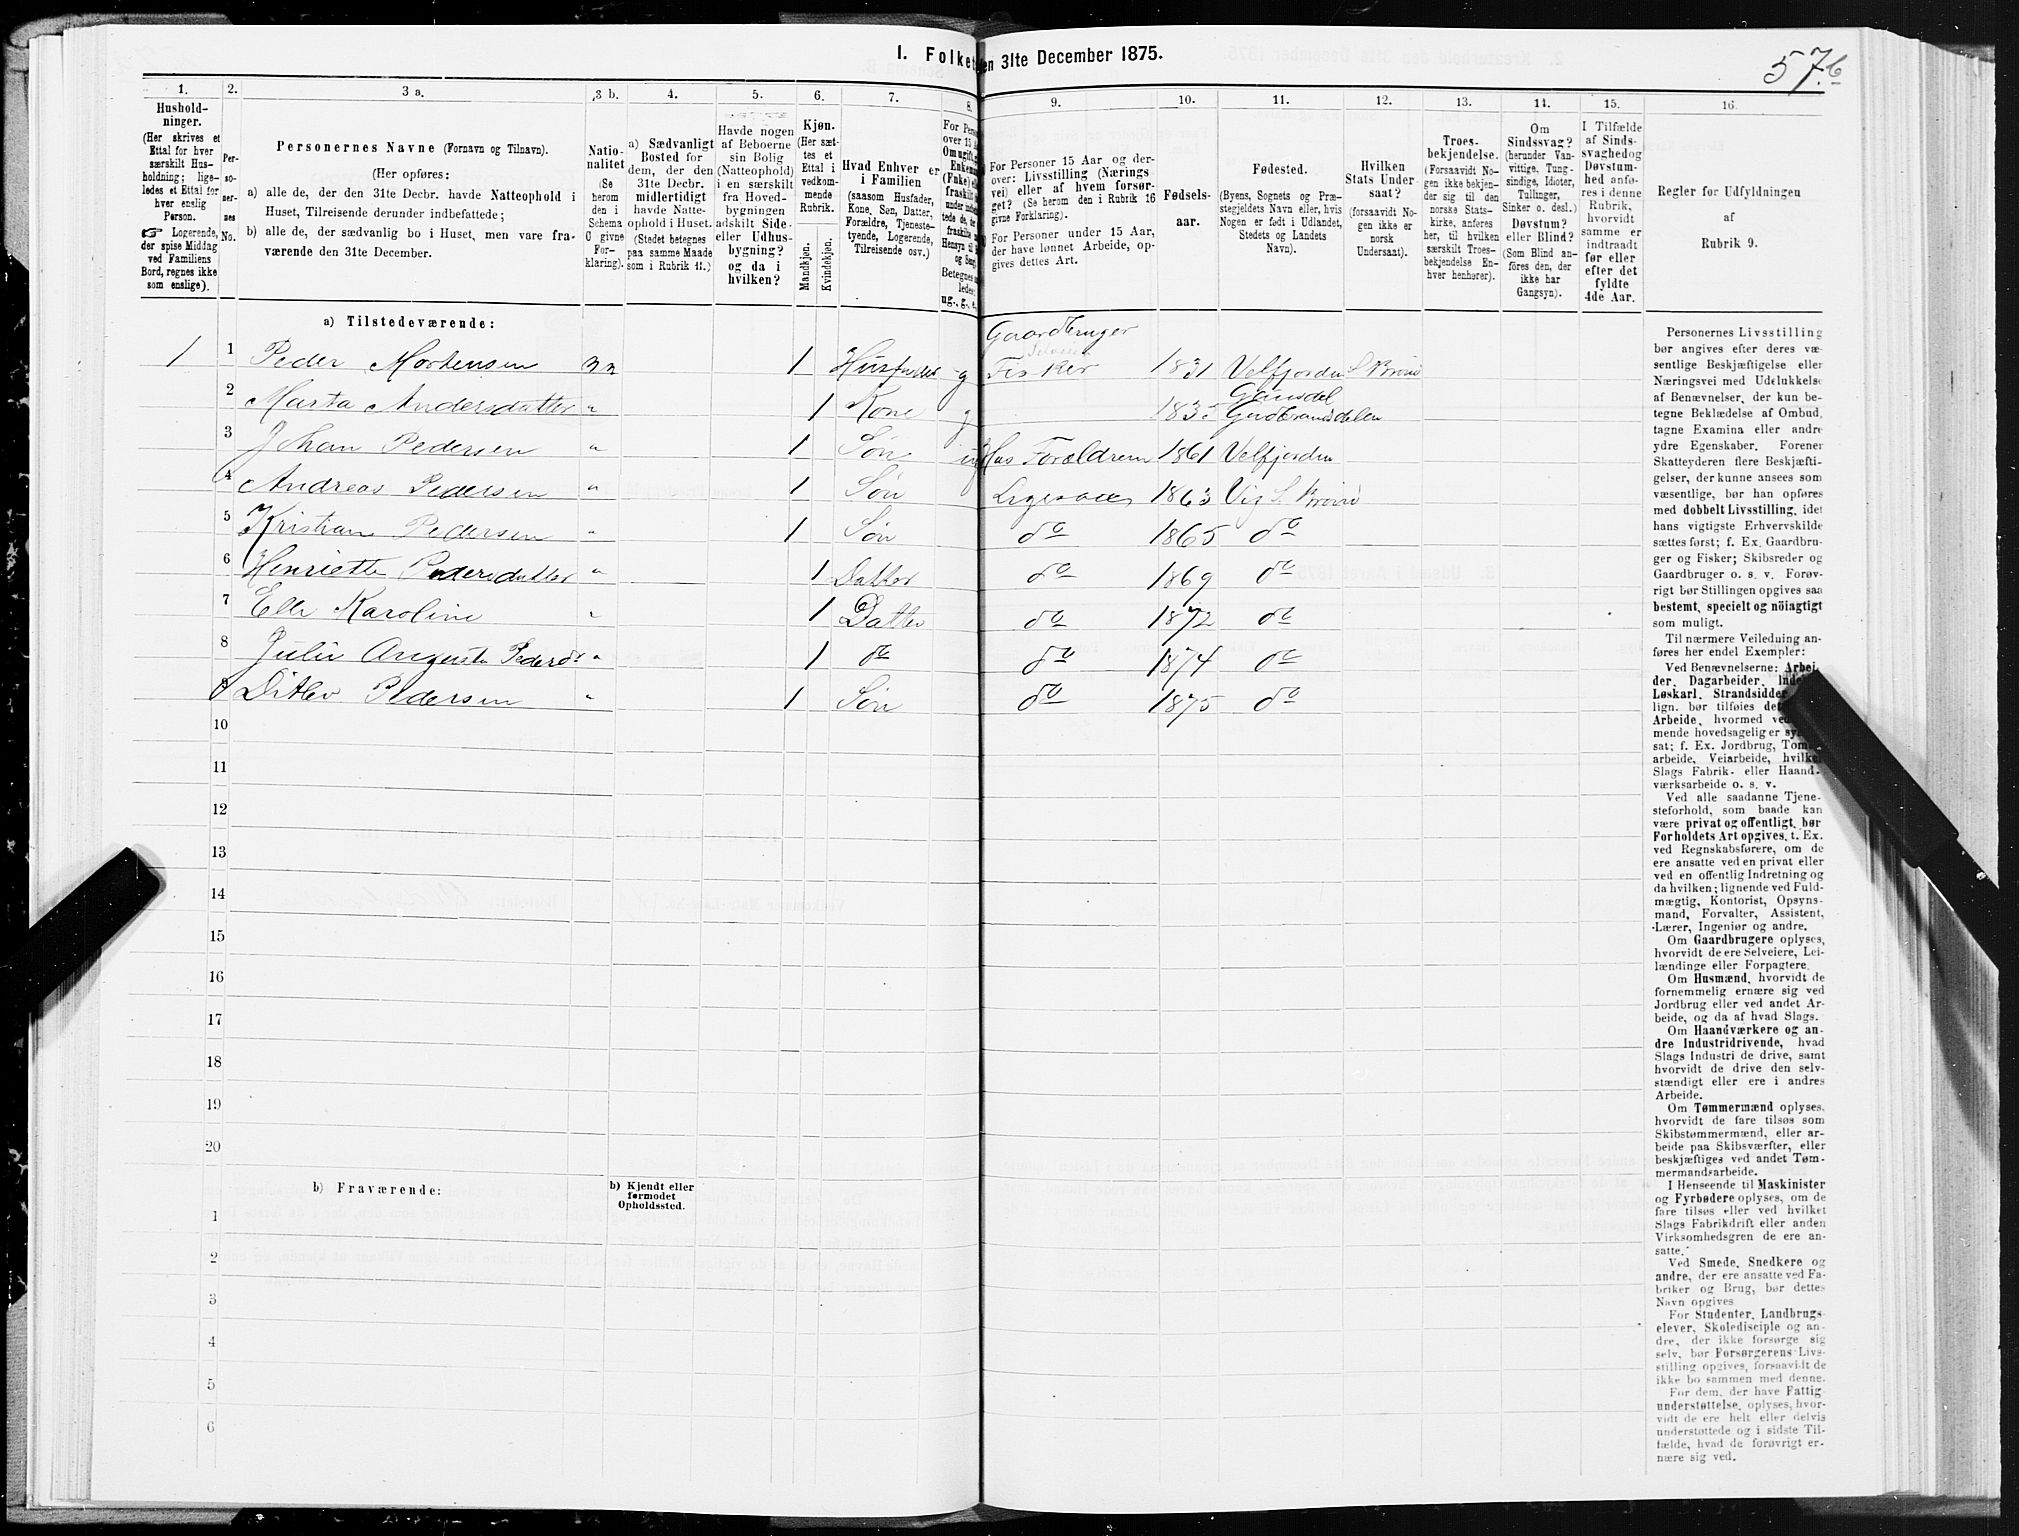 I. Folket en 31te December 1875.
57.b
1. 2. 3 a. 3 b. 4. 5. 6. 7. 8. 9. 10. 11. 12. 13. 14. 15. 16.
Hushold-
ninger.
(Her skrives et
Ettal for hver
særskilt Hus-
holdning; lige-
ledes et Ettal for
hver enslig
Person.
☞ Logerende,
der spise Middag
ved Familiens
Bord, regnes ikke
som enslige).
Per-
so-
ner-
nes
No.
Personernes Navne (Fornavn og Tilnavn).
(Her opføres:
a) alle de, der den 31te Decbr. havde Natteophold i
Huset, Tilreisende derunder indbefattede;
b) alle de, der sædvanlig bo i Huset, men vare fra-
værende den 31te December.
Natio-
nalitet
(Se
herom
den i
Schema
C givne
For-
klaring).
a) Sædvanligt
Bosted for
dem, der den
31te Decbr.
midlertidigt
havde Natte-
ophold i Huset.
(Stedet betegnes
paa samme Maade
som i Rubrik 11.)
Havde nogen
af Beboerne
sin Bolig
(Natteophold)
i en særskilt
fra Hoved-
bygningen
adskilt Side-
eller Udhus-
bygning?
og da i
hvilken?
Kjøn.
(Her sæt-
tes et
Ettal i
vedkom-
mende
Rubrik.
Mandkjøn.
Kvindekjøn.
Hvad Enhver er
i Familien
(saasom Husfader,
Kone, Søn, Datter,
Forældre, Tjeneste-
tyende, Logerende,
Tilreisende osv.)
For Perso
over 15 A
Om ugift, g
Enkem
(Enke) el
fraskilt
under
tede de, de
fraskilte
Hensyn til
og Seng.
Betegnes
ledes:
ug., g., e.
For Personer 15 Aar og der-
over: Livsstilling (Nærings-
vei) eller af hvem forsør-
get? (Se herom den i Rubrik 16
givne Forklaring).
For Personer under 15 Aar,
der have lønnet Arbeide, op-
gives dettes Art.
Fødsels-
aar.
Fødested.
(Byens, Sognets og Præ-
stegjeldets Navn eller, hvis
Nogen er født i Udlandet,
Stedets og Landets
Navn).
Hvilken
Stats Under-
saat?
(forsaavidt No-
gen ikke er
norsk
Undersaat).
Troes-
bekjendelse.
(Forsaavidt No-
gen ikke bekjen-
der sig til den
norske Stats-
kirke, anføres
her, til hvilken
særskilt Troes-
bekjendelse En-
hver henhører).
Om
Sindssvag?
(herunder Van-
vittige, Tung-
sindige, Idioter,
Tullinger,
Sinker o. desl.)
Døvstum?
eller Blind?
(Som Blind an-
føres den, der
ikke har
Gangsyn).
I Tilfælde
af Sinds-
svaghed og
Døvstum-
hed anfø-
res i denne
Rubrik,
hvorvidt
samme er
indtraadt
før eller
efter det
fyldte
4de Aar.
Regler for Udfyldningen
af
Rubrik 9.
a) Tilstedeværende:
Gaardbruger
1 1 Peder Mortensen nn 1 Husfader g Fisker 1831 Velfjorden S Brønø
Gausdal
2 Marta Andersdatter " 1 Kone g 183 Gudbrandsdalen
3 Johan Pedersen " 1 Søn Hos Forældrene 1861 Velfjorden
4 Andreas Pedersen " 1 Søn Ligesaa 1863 Vig S. Brønø
5 Kristian Pedersen " 1 Søn do 1865 do
6 Henriette Pedersdatter " 1 Datter do 1869 do
7 Elle Karoline " 1 Datter do 1872 do
8 Julie Auguste Pedersd " 1 do do 1874 do
9 Ditlev Pedersen " 1 Søn do 1875 do
10
11
12
13
14
15
16
17
18
19
20
b) Fraværende:
b) Kjendt eller
formodet
Opholdssted.
1
2
3
4
5
6
Personernes Livsstilling
bør angives efter deres væ-
sentlige Beskjæftigelse eller
Næringsvei med Udelukkelse
af Benævnelser, der kun be-
tegne Beklædelse af Ombud,
tagne Examina eller andre
ydre Egenskaber. Forener
Skatteyderen flere Beskjæfti-
gelser, der kunne ansees som
væsentlige, bør han opføres
med dobbelt Livsstilling, idet
hans vigtigste Erhvervskilde
sættes først; f. Ex. Gaardbru-
ger og Fisker; Skibsreder og
Gaardbruger o. s. v. Forøv-
rigt bør Stillingen opgives saa
bestemt, specielt og nöiagtigt
som muligt.
Til nærmere Veiledning an-
føres her endel Exempler:
Ved Benævnelserne: Arbei-
der, Dagarbeider, Inde
Løskarl, Strandsidder
lign. bør tilføies det
Arbeide, hvormed ved
mende hovedsagelig er sy
sat; f. Ex. Jordbrug, Tom
arbeide, Veiarbeide, hvilke
Slags Fabrik- eller Haand-
værksarbeide o. s. v.
Ved alle saadanne Tjene-
steforhold, som baade kan
være privat og offentligt, bør
Forholdets Art opgives, t. Ex.
ved Regnskabsførere, om de
ere ansatte ved en privat eller
ved en offentlig Indretning og
da hvilken; lignende ved Fuld-
mægtig, Kontorist, Opsyns-
mand, Forvalter, Assistent,
Lærer, Ingeniør og andre.
Om Gaardbrugere oplyses,
hvorvidt de ere Selveiere, Lei-
lændinge eller Forpagtere.
Om Husmænd, hvorvidt de
fornemmelig ernære sig ved
Jordbrug eller ved andet Ar-
beide, og da af hvad Slags.
Om Haandværkere og an-
dre Industridrivende, hvad
Slags Industri de drive, samt
hvorvidt de drive den selv-
stændigt eller ere i andres
Arbeide.
Om Tømmermænd oplyses,
hvorvidt de fare tilsøs som
Skibstømmermænd, eller ar-
beide paa Skibsværfter, eller
beskjæftiges ved andet Tøm-
mermandsarbeide.
I Henseende til Maskinister
og Fyrbødere oplyses, om de
fare tilsøs eller ved hvilket
Slags Fabrikdrift eller anden
Virksomhedsgren de ere an-
satte.
Ved Smede, Snedkere og
andre, der ere ansatte ved Fa-
briker og Brug, bør dettes
Navn opgives
For Studenter, Landbrugs-
elever, Skoledisciple og an-
dre, der ikke forsørge sig
selv, bør Forsørgerens Livs-
stilling opgives, forsaavidt de
ikke bo sammen med denne.
For dem, der have Fattig-
understøttelse, oplyses, hvor-
vidt de ere helt eller delvis
understøttede og i sidste Til-
fælde, hvad de forøvrigt er-
nære sig ved.